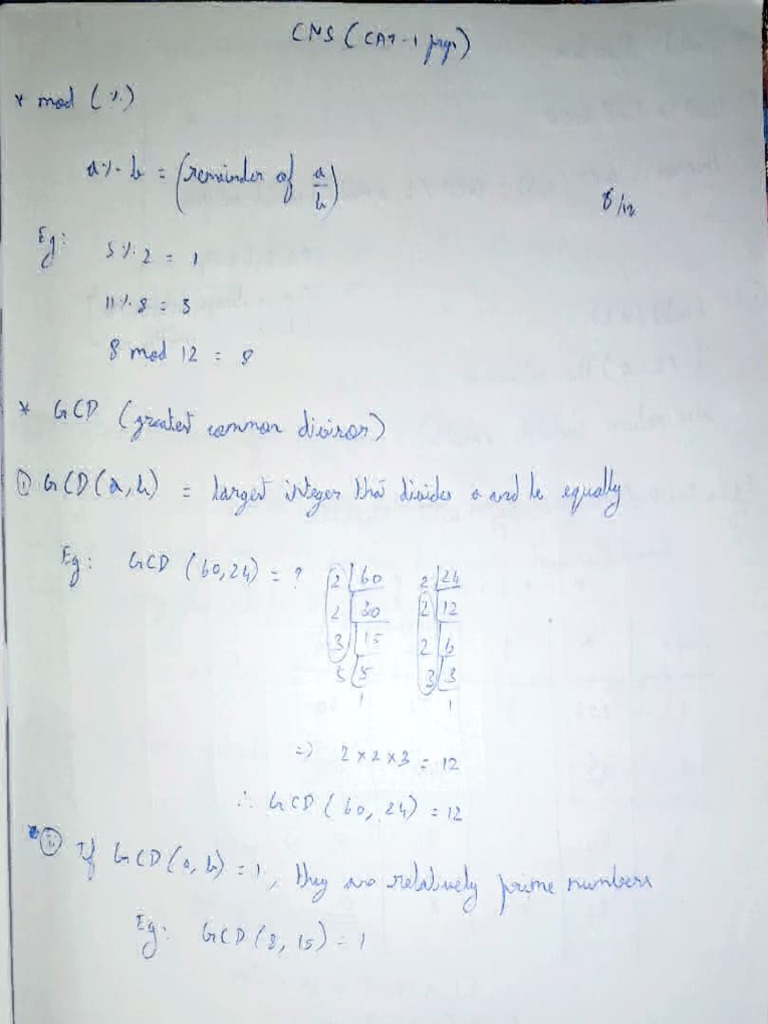 CNS (CAT-1 prep)
* mod (%)
a % b = (remainder of a/b)
8/12
Eg: 5 % 2 = 1
11 % 8 = 3
8 mod 12 = 8
* GCD (greatest common divisor)
① GCD(a,b) = largest integer that divides a and b equally
Eg: GCD (60,24) = ?
2 | 60   2 | 24
2 | 30   2 | 12
3 | 15   2 | 6
5 | 5   3 | 3
1   1
=> 2 x 2 x 3 = 12
∴ GCD (60, 24) = 12
② If GCD(a, b) = 1, they are relatively prime numbers
Eg: GCD (8, 15) = 1